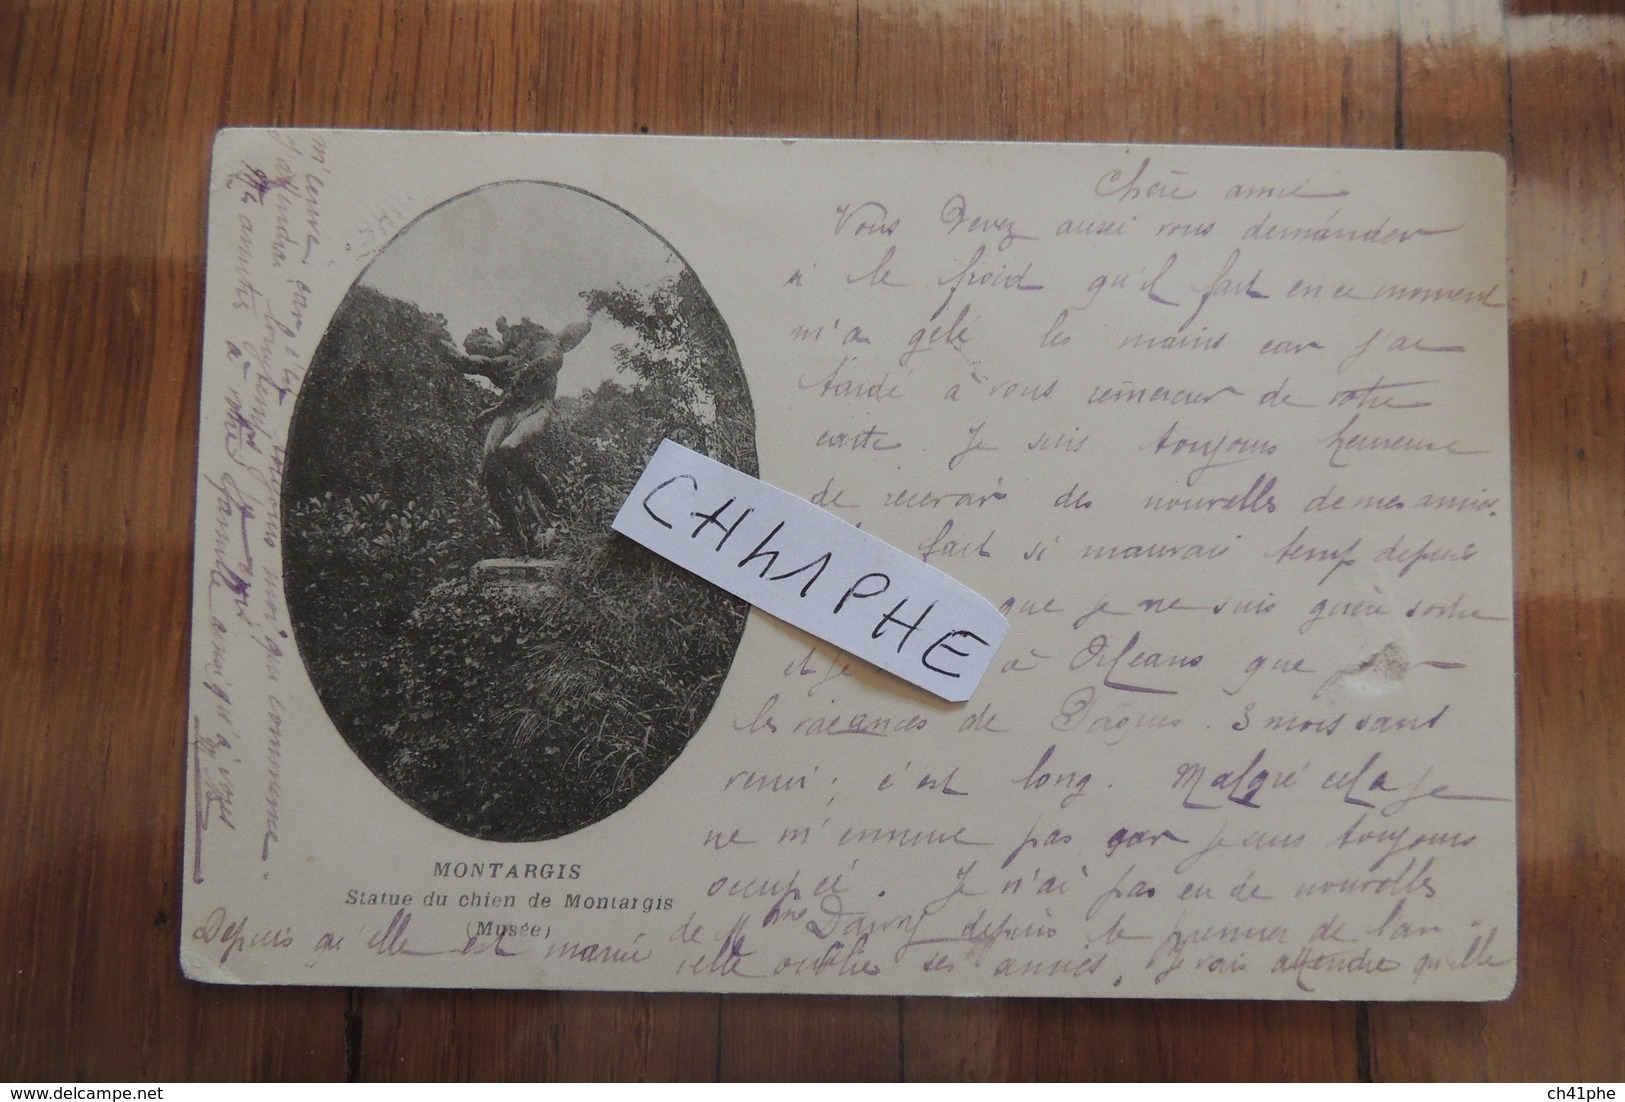 Chère amie
Vous devez aussi vous demander
si le froid qu'il fait en ce moment
m'a gelé les mains car j'ai
tardé à vous remercier de votre
carte. Je suis toujours heureuse
de recevoir des nouvelles de mes amies.
fait si mauvais temps depuis
que je ne suis guère sortie
et je à Orléans que
les vacances de Pâques. 3 mois sans
venir ; c'est long. Malgré cela je
ne m'ennuie pas car je suis toujours
occupée. Je n'ai pas eu de nouvelles
de Mme Davry depuis le premier de l'an.
Depuis qu'elle est mariée elle oublie ses amies. Je vais attendre qu'elle
m'écrive car c'est toujours moi qui commence.
J'attendrai longtemps je crois
Mes amitiés à votre famille ainsi qu'à vous
MONTARGIS
Statue du chien de Montargis
(Musée)
CH41PHE
delcampe.net
ch41phe